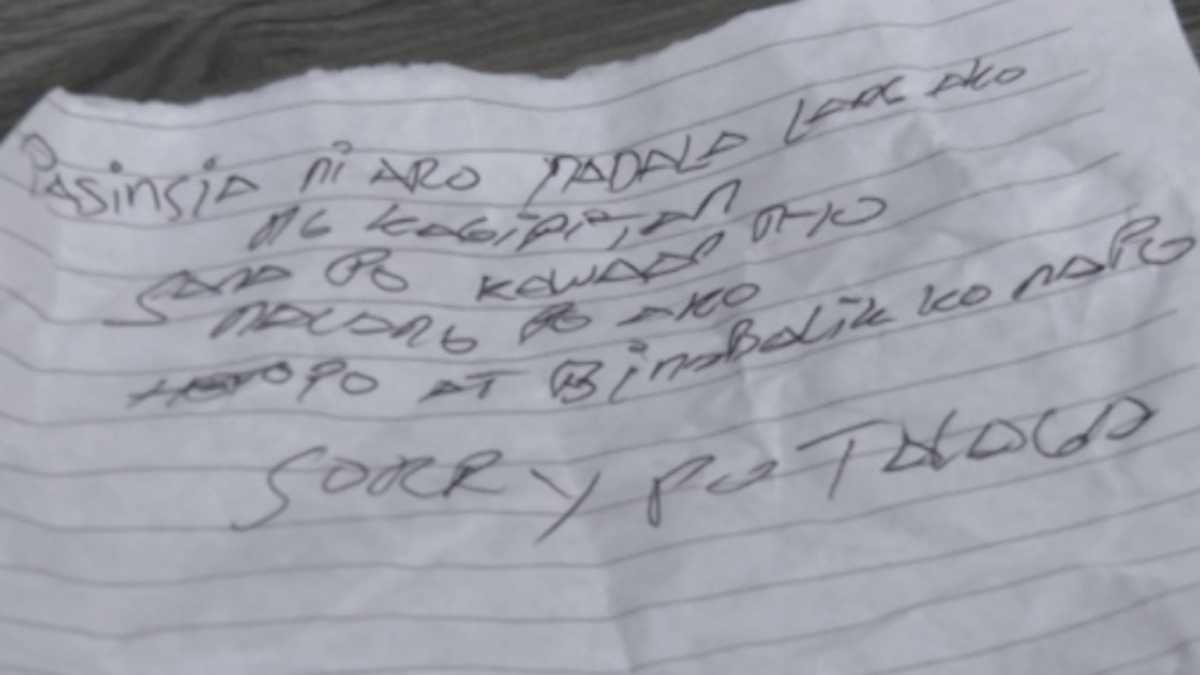 Pasinsia ni ARO NADALA LANG AKO
NG KAGIPITAN
SANA PO KAWAAN NIYO
NALANG PO AKO
HETO PO AT BINABALIK KO NA PO
SORRY PO TALAGA